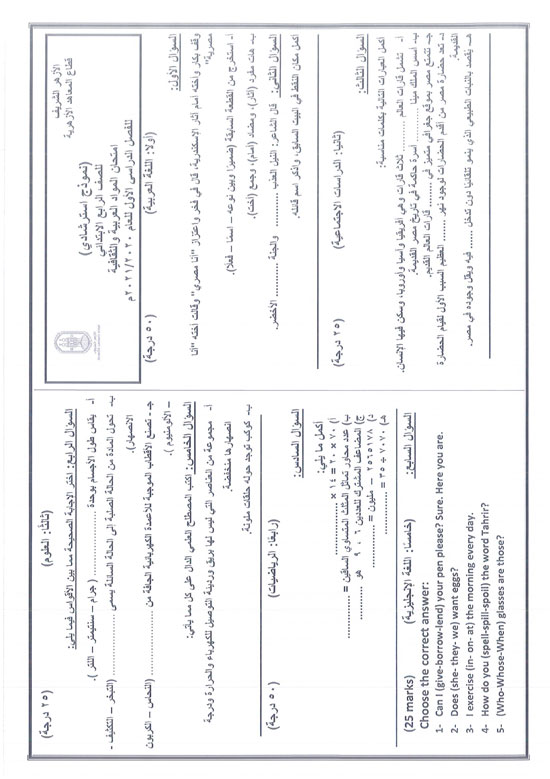 الأزهر الشريف
قطاع المعاهد الأزهرية
(نموذج استرشادي)
للصف الرابع الابتدائي
امتحان المواد العربية والثقافية
للفصل الدراسي الأول للعام ٢٠٢١/٢٠٢٠م
(أولا: اللغة العربية) (٥٠ درجة)
السؤال الأول:
وقف بكر وأخته أمام آثار الإسكندرية، قال في فخر واعتزاز "أنا مصري" وقالت أخته "أنا
مصرية"
أ- استخرج من القطعة السابقة (ضميرا وبين نوعه – اسما – فعلا).
ب- هات مفرد (آثار)، ومضاد (أمام)، وجمع (أخته).
السؤال الثاني: قال الشاعر: النيل العذب .......... والجنة .......... الأخضر.
أكمل مكان النقط في البيت السابق، واذكر اسم قائله.
(ثانيا: الدراسات الاجتماعية) (٢٥ درجة)
السؤال الثالث:
أكمل العبارات التالية بكلمات مناسبة:
أ- تشمل قارات العالم .......... ثلاث قارات وهي أفريقيا وآسيا وأوروبا، وسكن فيها الإنسان.
ب- أسس الملك مينا .......... أسرة حاكمة في تاريخ مصر القديمة.
ج- تتمتع مصر بموقع جغرافي متميز في .......... قارات العالم القديم.
د- تعد حضارة مصر من أقدم الحضارات لوجود نهر .......... العظيم السبب الأول لقيام الحضارة
القديمة.
هـ- يقصد بالنبات الطبيعي الذي ينمو تلقائيا دون تدخل .......... فيه ويقل وجوده في مصر.
(ثالثا: العلوم) (٢٥ درجة)
السؤال الرابع: اختر الإجابة الصحيحة مما بين الأقواس فيما يلي:
أ- يقاس طول الأجسام بوحدة .......... (جرام – سنتيمتر – اللتر).
ب- تحول المادة من الحالة الصلبة إلى الحالة السائلة يسمى .......... (التبخر – التكثيف -
الانصهار).
ج- تصنع الأقطاب الموجبة للأعمدة الكهربائية الجافة من .......... (النحاس – الكربون
– الألومنيوم).
السؤال الخامس: اكتب المصطلح العلمي الدال على كل مما يأتي:
أ- مجموعة من العناصر التي ليس لها بريق ورديئة التوصيل للكهرباء والحرارة ودرجة
انصهارها منخفضة.
ب- كوكب توجد حوله حلقات ملونة.
(رابعا: الرياضيات) (٥٠ درجة)
السؤال السادس:
أكمل ما يلي:
أ) ٧٠ × ٢٠ = ١٤ × ..........
ب) عدد محاور تماثل المثلث المتساوي الساقين = ..........
ج) المضاعف المشترك للعددين ٩ ، ٦ هو ..........
د) ٢٥٦٥١٧٨ – مليون = ..........
هـ) ٧٠٧٠ ÷ ٣٥ = ..........
السؤال السابع: (خامسا: اللغة الإنجليزية) (25 marks)
Choose the correct answer:
1- Can I (give-borrow-lend) your pen please? Sure. Here you are.
2- Does (she- they- we) want eggs?
3- I exercise (in- on- at) the morning every day.
4- How do you (spell-spill-spoil) the word Tahrir?
5- (Who-Whose-When) glasses are those?